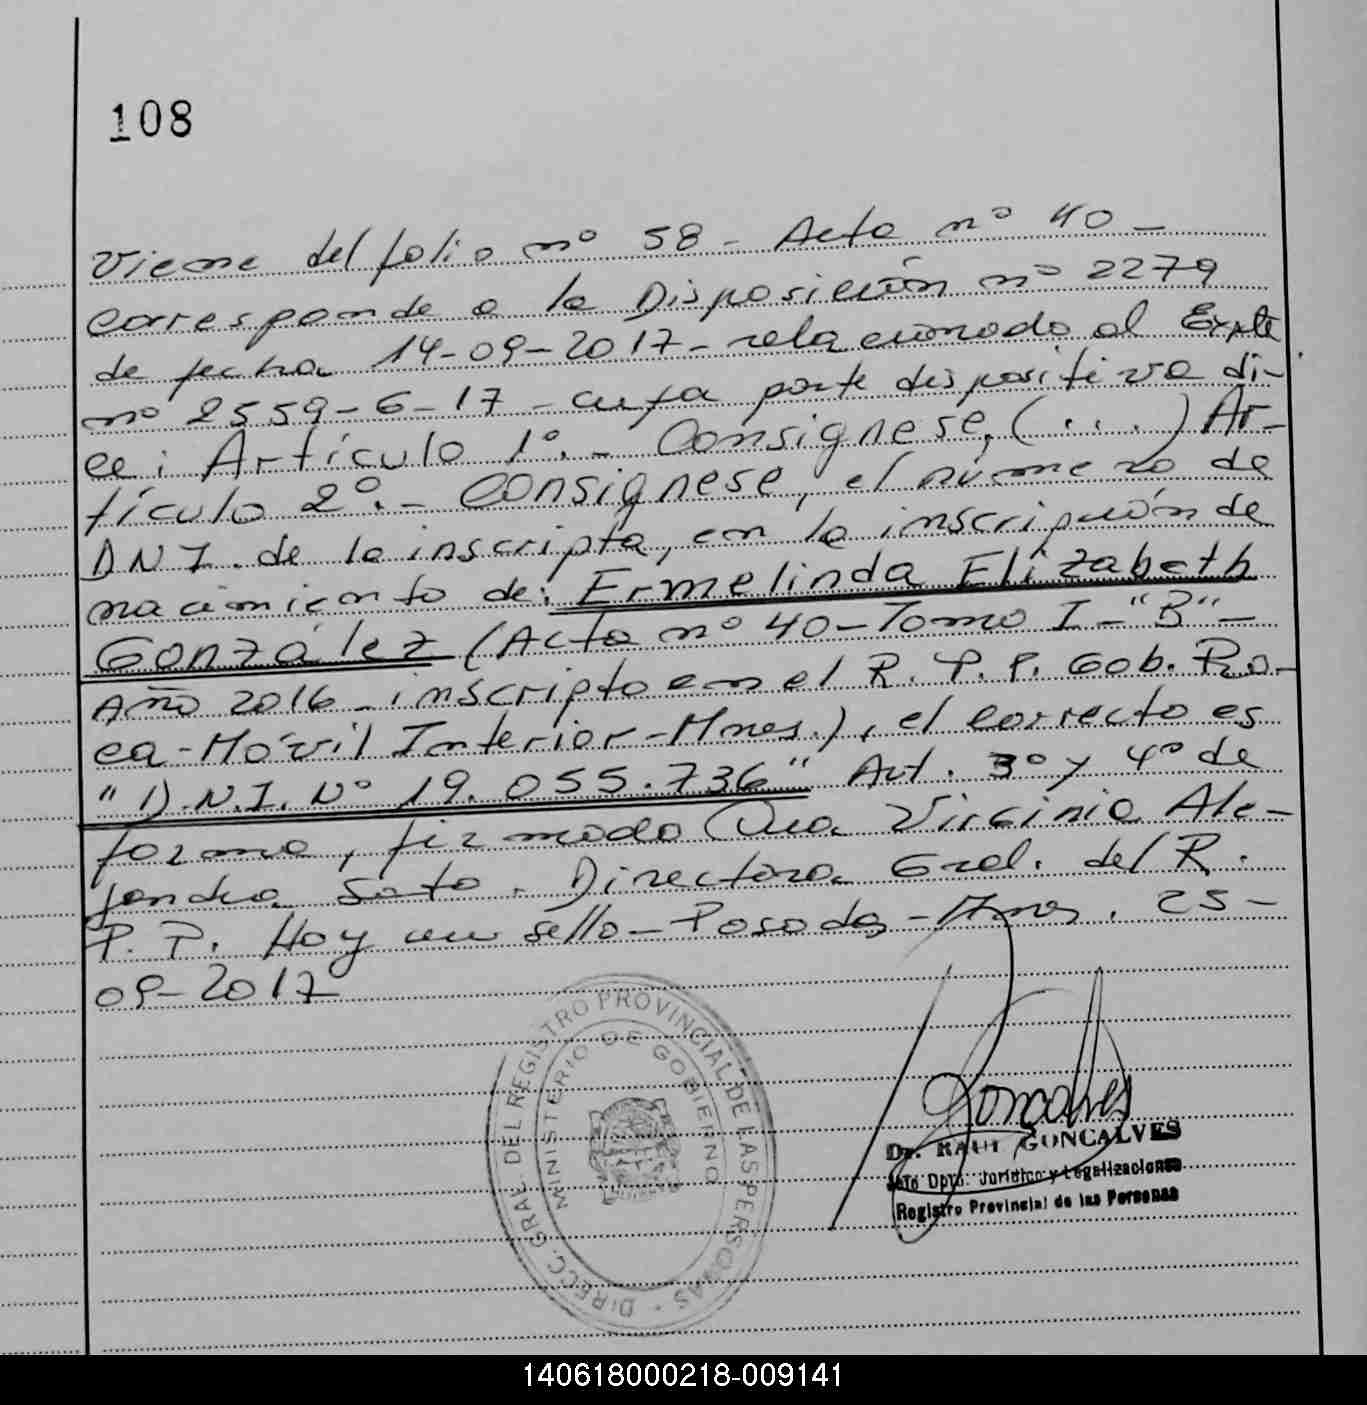 108
Viene del folio nº 58 - Acta nº 40 -
corresponde a la Disposición nº 2279
de fecha 14-09-2017 - relacionado al Expte
nº 2559-G-17 - cuya parte dispositiva di-
ce: Artículo 1º.- Consígnese, (...) Ar-
tículo 2º.- Consígnese, el número de
DNI. de la inscripta, en la inscripción de
nacimiento de: Ermelinda Elizabeth
González (Acta nº 40 - Tomo I - "B" -
Año 2016 - inscripto en el R. P. P. Gob. Ro-
ca - Móvil Interior - Mnes.), el correcto es
"D.N.I. Nº 19.055.736" Art. 3º y 4º de
forma, firmado Dra Virginia Ale-
jandra Soto. Directora Gral. del R.
P. P. Hoy un sello - Posadas - Mnes. 25-
09-2017
DIRECC. GRAL. DEL REGISTRO PROVINCIAL DE LAS PERSONAS
MINISTERIO DE GOBIERNO
Goncalves
Dr. RAUL GONCALVES
Jefe Dpto. Jurídico y Legalizaciones
Registro Provincial de las Personas
140618000218-009141